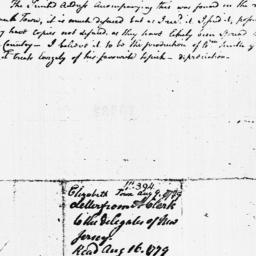 The Printed Address Accompanying this was found in the
Town, it is much defaced but as I read it I send it,
have Copies not defaced as they have likely been Spread
Country — I believe it to be the production of
it treats largely of his favourite topick — depreciation.
No. 394
Elizabeth Town Aug 9. 1779
Letter from A Clark
to the delegates of New
Jersey.
Read Aug 16. 1779